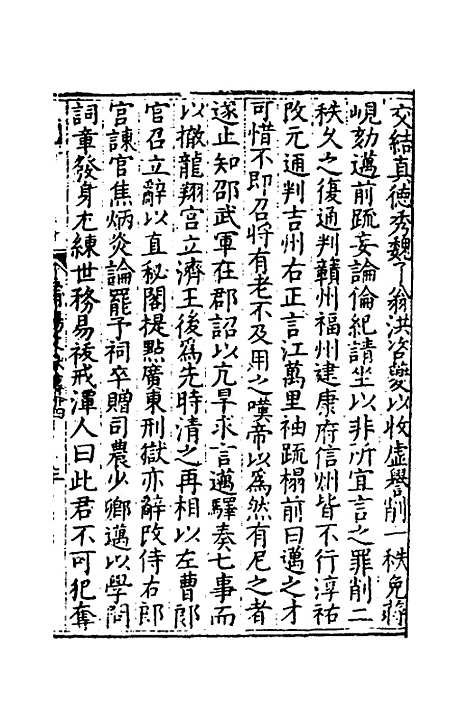 交結真德秀魏了翁洪咨夔以收虛譽削一秩免蔣
峴劾邁前疏妄論倫紀請坐以非所宜言之罪削二
秩久之復通判贛州福州建康府信州皆不行淳祐
改元通判吉州右正言江萬里袖疏榻前曰邁之才
可惜不即召將有老不及用之嘆帝以為然有尼之者
遂止知邵武軍在郡詔以亢旱求言邁驛奏七事而
以撤龍翔宮立濟王後爲先時清之再相以左曹郎
官召立辭以直秘閣提點廣東刑獄亦辭改侍右郎
官諫官焦炳炎論罷予祠卒贈司農少卿邁以學問
詞章發身尤練世務易祓戒渾人曰此君不可犯奪